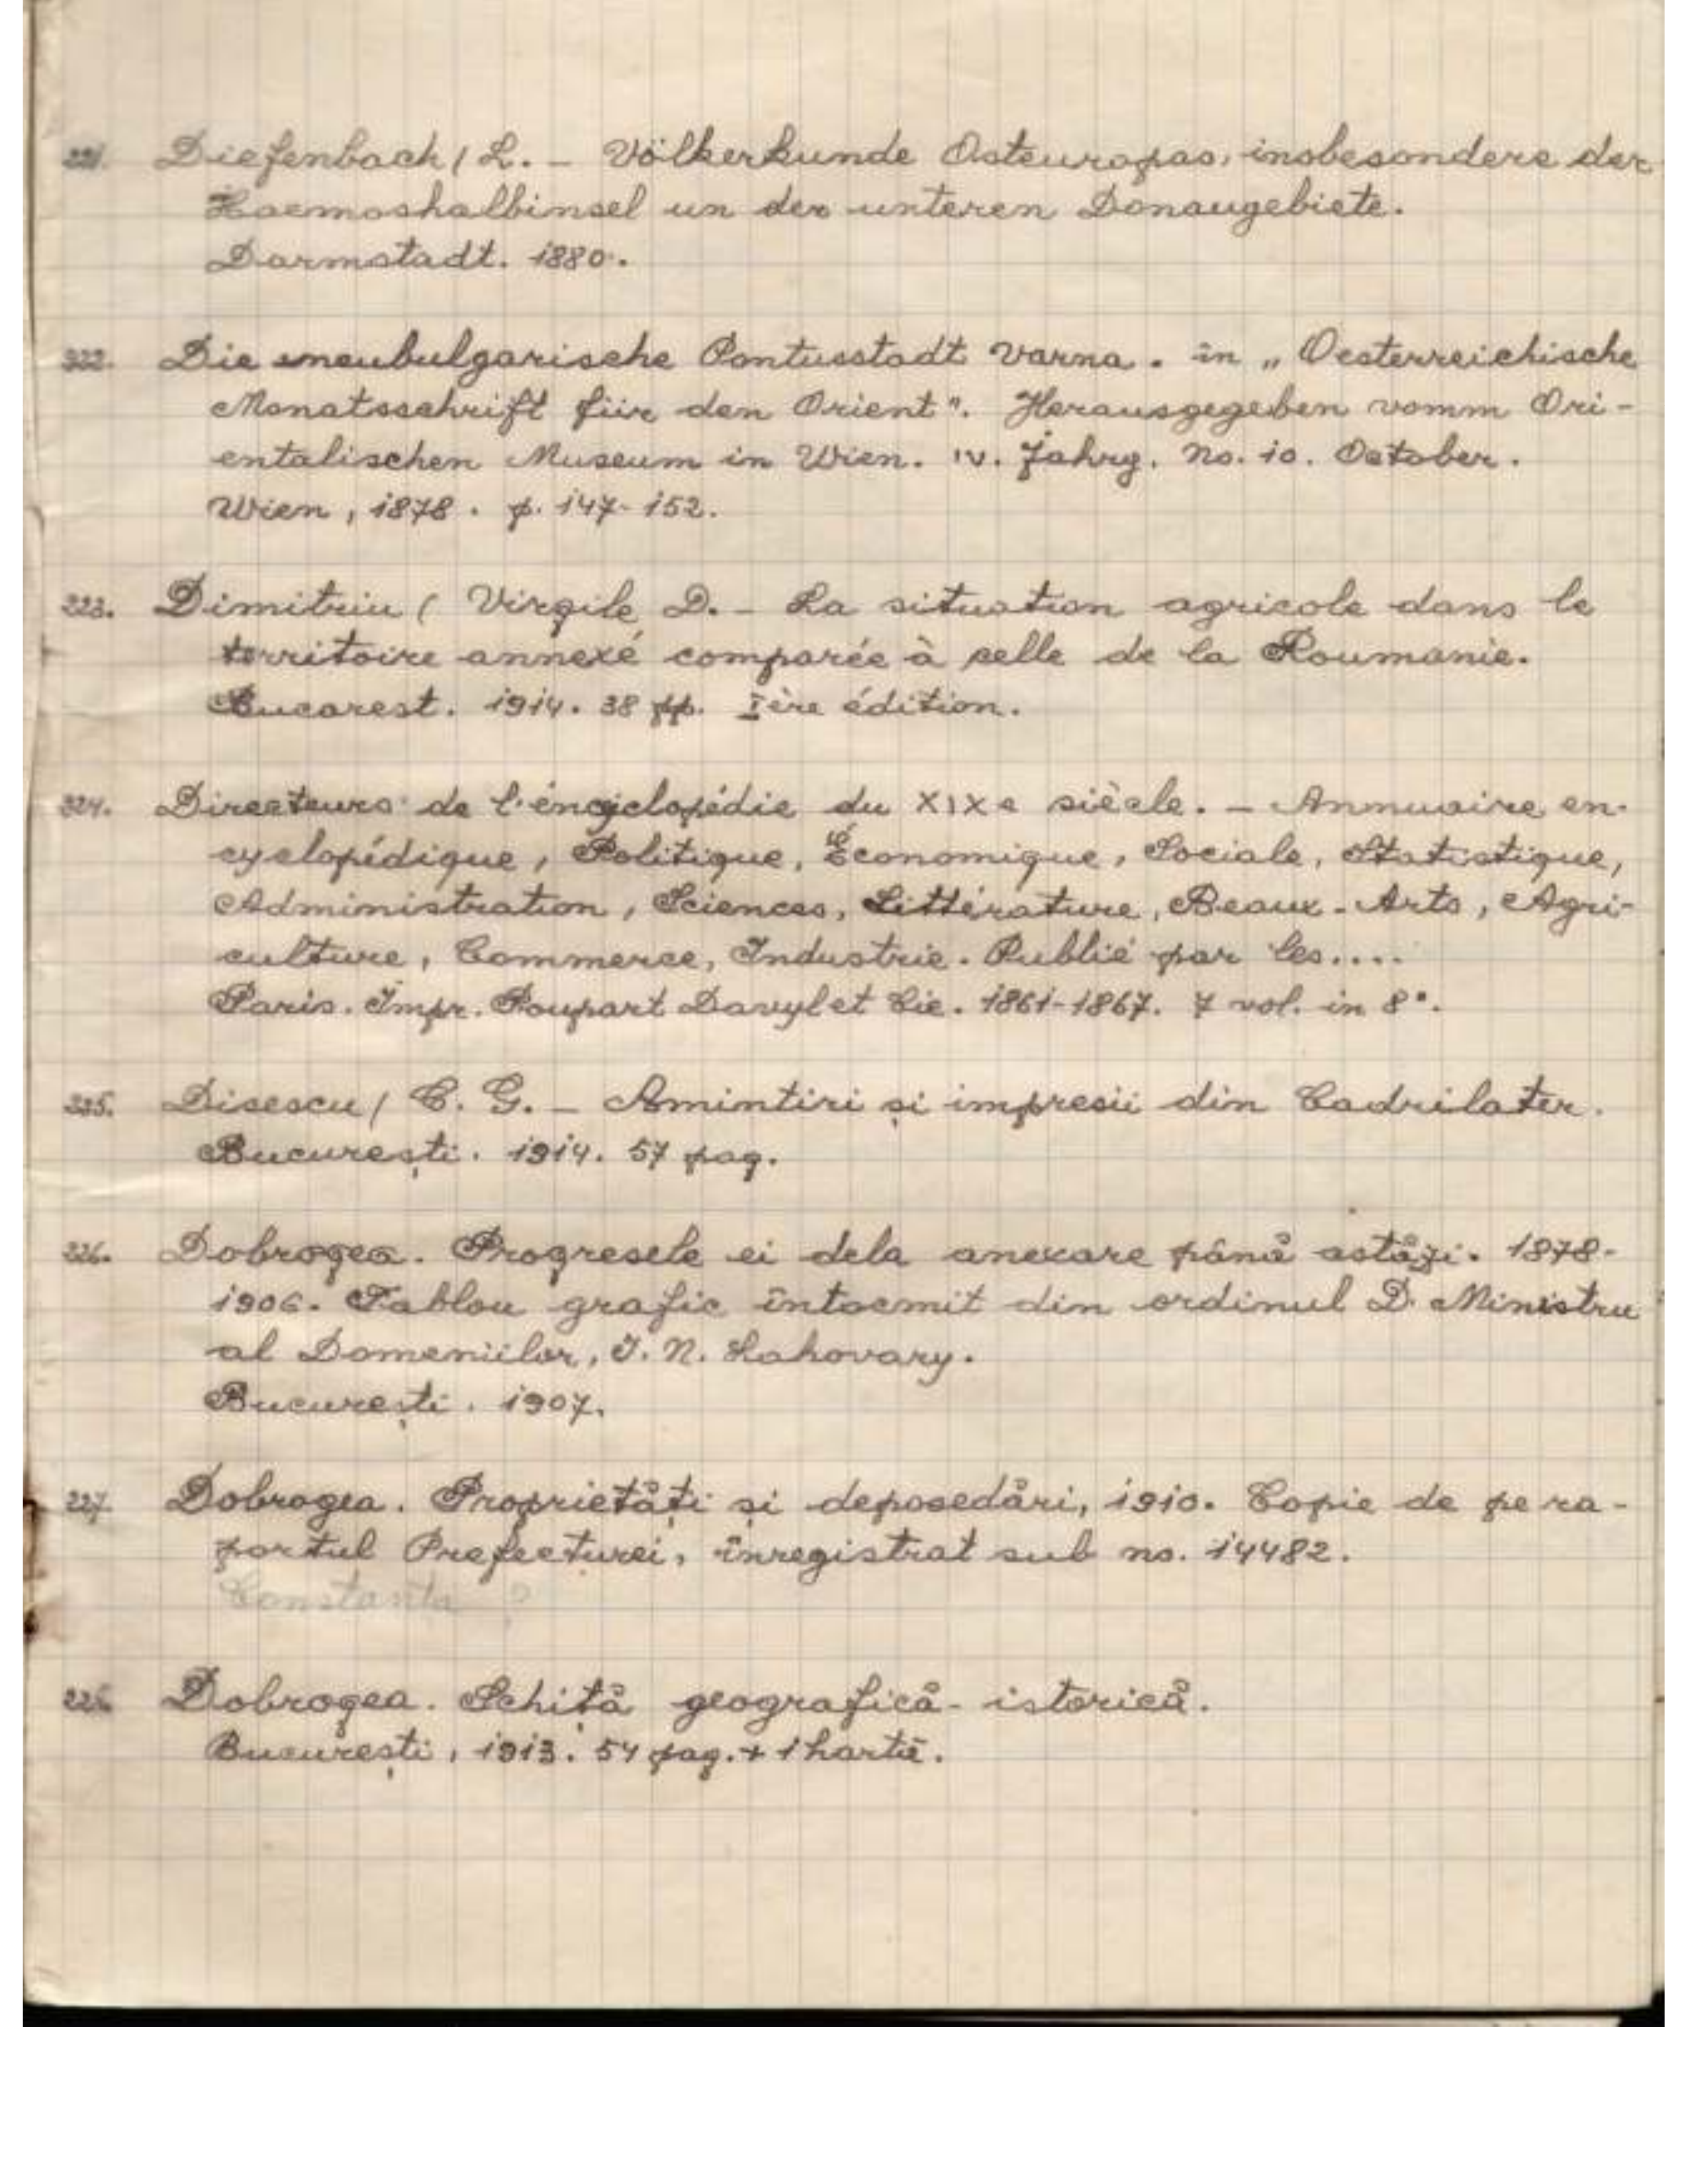 221. Diefenbach / L. – Völkerkunde Osteuropas, insbesondere der
Haemoshalbinsel un der unteren Donaugebiete.
Darmstadt. 1880.
222. Die neubulgarische Pontusstadt Varna. în „Oesterreichische
Monatsschrift für den Orient". Herausgegeben vomm Ori-
entalischen Museum in Wien. IV. Jahrg. No. 10. October.
Wien, 1878. p. 147-152.
223. Dimitriu ( Virgile D. – La situation agricole dans le
territoire annexé comparée à celle de la Roumanie.
Bucarest. 1914. 38 pp. Ière édition.
224. Directeurs de l'éncyclopédie du XIXe siècle. – Annuaire en-
cyclopédique, Politique, Économique, Sociale, Statistique,
Administration, Sciences, Littérature, Beaux-Arts, Agri-
culture, Commerce, Industrie. Publié par les....
Paris. Impr. Poupart Davyl et Cie. 1861-1867. 7 vol. in 8°.
225. Disescu / C. G. – Amintiri și impresii din Cadrilater.
București. 1914. 57 pag.
226. Dobrogea. Progresele ei dela anexare până astăzi. 1878-
1906. Tablou grafic întocmit din ordinul D. Ministru
al Domeniilor, I. N. Lahovary.
București. 1907.
227. Dobrogea. Proprietăți și deposedări, 1910. Copie de pe ra-
portul Prefecturei, înregistrat sub no. 14482.
Constanta ?
228. Dobrogea. Schiță geografică-istorică.
București, 1913. 54 pag. + 1 hartă.